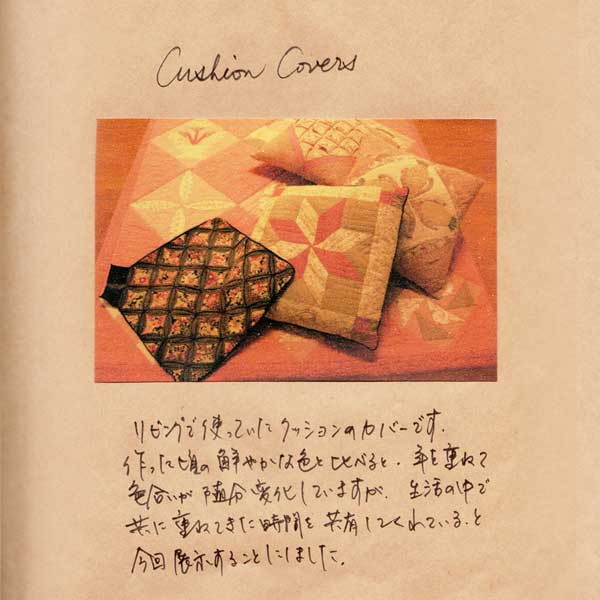 Cushion Covers
リビングで使っていたクッションのカバーです.
作った頃の鮮やかな色と比べると、年を重ねて
色合いが随分変化していますが、生活の中で
共に重ねてきた時間を共有してくれていると
今回展示することにしました.